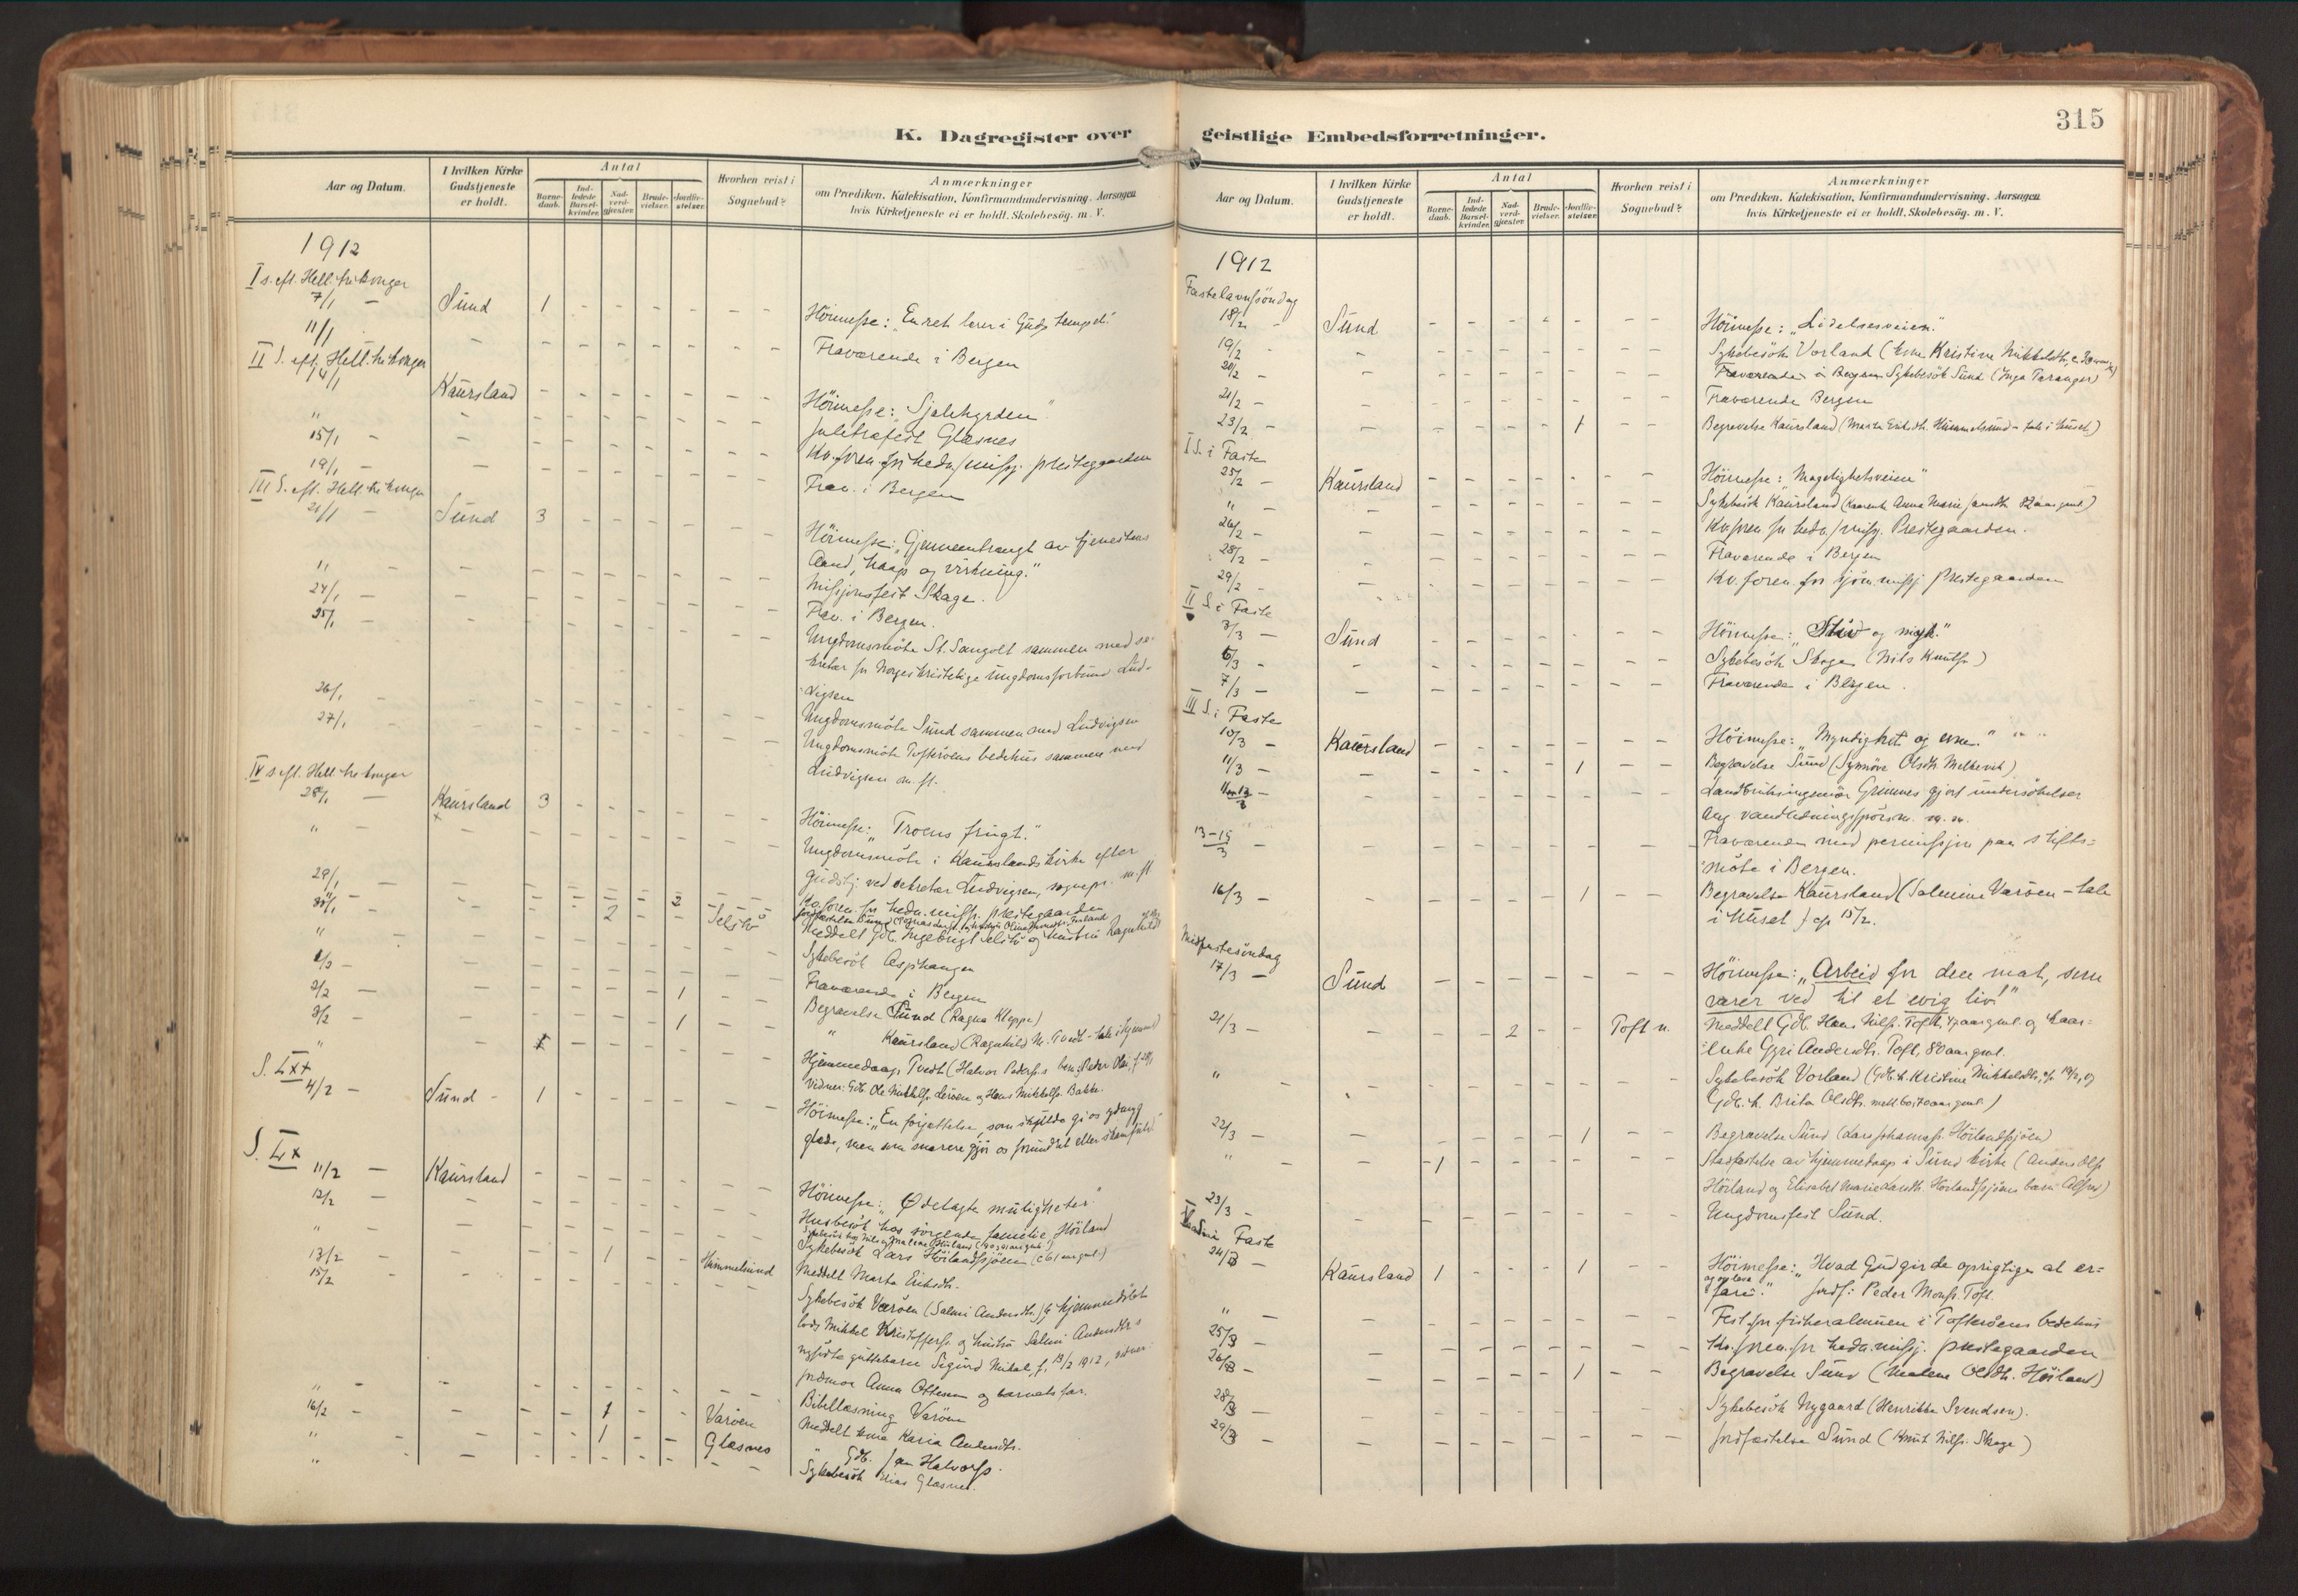 K. Dagregister over
Aar og Datum.
I hvilken Kirke Gudstjeneste er holdt.
Antal
Barne-daab.
Ind-ledede Barsel-kvinder.
Nad-verd-gjester.
Brude-vielser.
Jordfæ-stelser.
Hvorhen reist i Sognebud?
Anmærkninger
om Prædiken, Katekisation, Konfirmandundervisning. Aarsagen
hvis Kirketjeneste ei er holdt. Skolebesög. m. V.
1912
I s. eft. Hell. tre konger
7/1 - Sund 1 Höimesse: "En ret lærer i Guds tempel."
11/1 Fraværende i Bergen
II S. eft. Hell. tre konger
14/1 Kaursland Höimesse: "Sjælehyrden"
" Juletræfest Glæsnes
15/1 - Kv. foren. for hedn/missj. prestegaarden
19/1 - Frav. i Bergen
III S. eft. Hell. tre konger
21/1 - Sund 3 Höimesse: "Gjennemtrængt av tjenestens
Aand, haap og virkning."
" Missjonsfest Skage.
24/1 - Frav. i Bergen.
25/1 Ungdomsmöte St. Sangolt sammen med se-
kretær for Norges kristelige ungdomsforbund Lud-
vigsen
26/1 - Ungdomsmöte Sund sammen med Ludvigsen
27/1 Ungdomsmöte Tofteröens bedehus sammen med
Ludvigsen m. fl.
IV s eft. Hell tre konger
28/1 - Kaursland 3 Höimesse: "Troens frugt."
" - Ungdomsmöte i Kaurslands kirke efter
gudstj. ved sekretær Ludvigsen, sognepr. m. fl
29/1 - 2 Kv. foren. for hedn. missj. prestegaarden
30/1 - 2
" Meddelt Gdb. Ingebrigt og hustru Ragnhild
Sykebesök Asphaugen
2/2 - Fraværende i Bergen
3/2 - 1 Begravelse Sund (Ragna Kleppe)
" 1 " Kaursland (Ragnhild
Hjemmedaap Tveit (Halvor Peders.s barn: Peder
Vidner: Gdb. Ole Mikkels. Leröen og Hans Mikkels. Bakke.
S. LXX
4/2 - Sund - 1 Höimesse: "En forjættelse, som skulde gi os ydmyg
glæde, men som snarere gjör os
S. LX
11/2 - Kaursland Höimesse: "Ødelagte muligheter"
12/2 - Husbesök hos sörgende familie, Höiland
" Sykebesök Lars Höilandssjöen (c 61 aar gml.)
13/2 - 1 Himmelsund Meddelt Marta Eriksdtr.
15/2 - Sykebesök Varöen (Salmi Andersdtr.) & hjemmedöbt
hos Mikkel Kristoffers. og hustru Salmi Andersdtr.s
nyfödte guttebarn Sigurd Mikal, f. 13/2 1912, vidner:
jordmor Anna Ottesen og barnets far.
" Bibellæsning Varöen
16/2 - 1 Varöen Meddelt kone Karia Andersdtr.
" 1 Glæsnes " Gdb. Jan Halvors.
" Sykebesök Nias Glæsnes.
geistlige Embedsforretninger.
315
Aar og Datum.
I hvilken Kirke Gudstjeneste er holdt.
Antal
Barne-daab.
Ind-ledede Barsel-kvinder.
Nad-verd-gjester.
Brude-vielser.
Jordfæ-stelser.
Hvorhen reist i Sognebud?
Anmærkninger
om Prædiken, Katekisation, Konfirmandundervisning. Aarsagen
hvis Kirketjeneste ei er holdt. Skolebesög. m. V.
1912
Fastelavnssöndag
18/2 - Sund Höimesse: "Lidelsesveien."
19/2 - Sykebesök Vorland (kone Kristine Mikkelsdtr.
20/2 - Sykebesök Sund (Inga Taranger)
21/2 - Fraværende Bergen
23/2 - 1 Begravelse Kaursland (Marta Eriksdtr. Himmelsund - tale i huset)
I S. i Faste
25/2 - Kaursland Höimesse: "Magelighetsveien"
" Sykebesök Kaursland (kaarenke Anna Marie Jansdtr. 82 aar gml)
26/2 - Kv. foren for hedn/missj. Prestegaarden.
28/2 - Fraværende i Bergen
29/2 - Kv. foren. for sjöm. missj. Prestegaarden
II S. i Faste
3/3 - Sund Höimesse: "Stiv og myk."
6/3 - Sykebesök Skoge (Nils Knuts.)
7/3 - Fraværende i Bergen.
III S. i Faste
10/3 - Kaursland Höimesse: "Myndighet og evne."
11/3 - 1 Begravelse Sund (Synnöve Olsdtr. Melkevik)
11 og 12/3 - Landbruksingeniör Grimnes gjort undersökelser
ang vandledningsspörsm. m. m.
13-15/3 - Fraværende med permissjon paa stifts-
möte i Bergen.
16/3 - 1 Begravelse Kaursland (Salmine Varöen - tale
i huset) cfr 15/2.
Midfastesöndag
17/3 - Sund Höimesse: "Arbeid for den mat, som
varer ved til et evig liv!"
21/3 - 2 Toft n. Meddelt Gdb. Hans Nils. Toft, aar gml. og kaar-
enke Gyri Andersdtr. Toft, 80 aar gml.
" Sykebesök Vorland (Gdb. k. Kristine Mikkelsdtr., cfr 19/2, og
Gdb. k. Brita Olsdtr. aar gml.)
22/3 - 1 Begravelse Sund (Lars Johanness. Höilandssjöen)
" 1 Stadfæstelse av hjemmedaap i Sund kirke (Anders Ols.
Höiland og Elisabet Marie Larsdtr. Höilandssjöens barn: Alfred)
23/3 - Ungdomsfest Sund.
V S. i Faste
24/3 - Kaursland 1 1 Höimesse: "Hvad Gud gir de oprigtige at er-
fare og opleve." Jordf: Peder Mons. Toft.
" Fest for fiskeralmuen i Tofteröens bedehus
25/3 - Kv. foren. for hedn. missj. prestegaarden
26/3 - 1 Begravelse Sund (Malene Olsdtr. Höiland)
28/3 - Sykebesök Nygaard (Henrikke Svendsen).
29/3 - Jordfæstelse Sund (Knut Nils. Skoge)